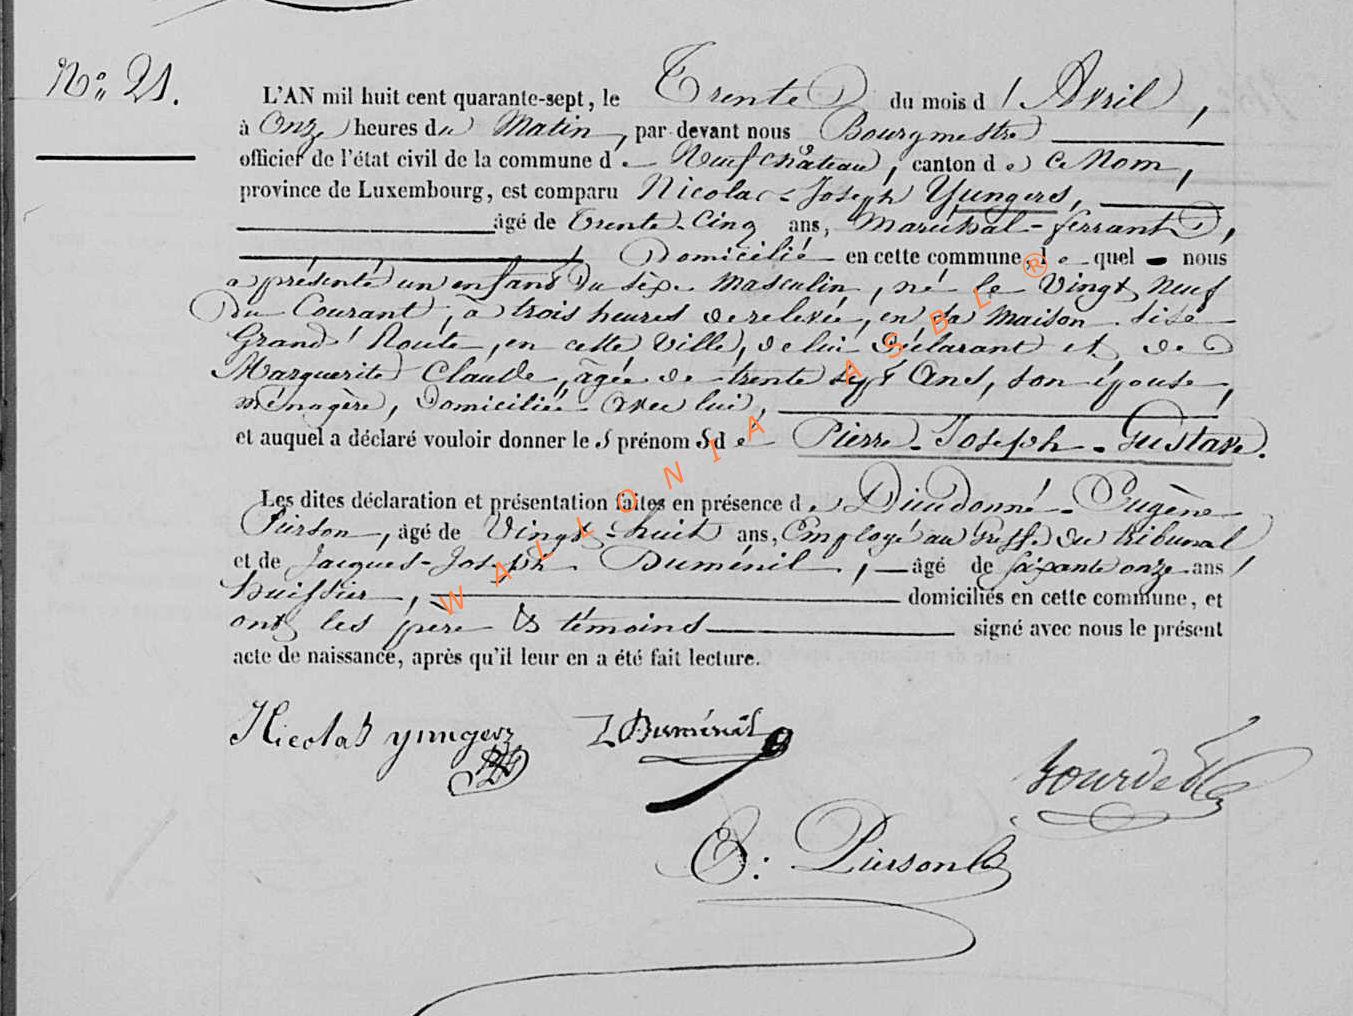 N.° 21.
L'AN mil huit cent quarante-sept, le Trente du mois d'Avril,
à Onze heures du Matin, par devant nous Bourgmestre
officier de l'état civil de la commune de Neufchâteau, canton de ce Nom,
province de Luxembourg, est comparu Nicolas-Joseph Yungers,
âgé de Trente-Cinq ans, Maréchal-ferrant,
Domicilié en cette commune, lequel nous
a présenté un enfant du sèxe masculin, né le Vingt Neuf
Du Courant, à trois heures de relevée, en sa maison sise
Grand'Route, en cette Ville, de lui déclarant et de
Marguerite Claude, âgée de trente sept ans, son épouse,
ménagère, Domiciliée avec lui,
et auquel a déclaré vouloir donner les prénoms de Pierre-Joseph-Gustave.
Les dites déclaration et présentation faites en présence de Dieudonné-Eugène
Pierson, âgé de Vingt-huit ans, Employé au Greffe du tribunal
et de Jacques-Joseph Duménil, âgé de soixante onze ans
huissier, domiciliés en cette commune, et
ont les père & témoins signé avec nous le présent
acte de naissance, après qu'il leur en a été fait lecture.
Nicolas yungers J Duménil
E: Pierson
WALLONIA ASBL®